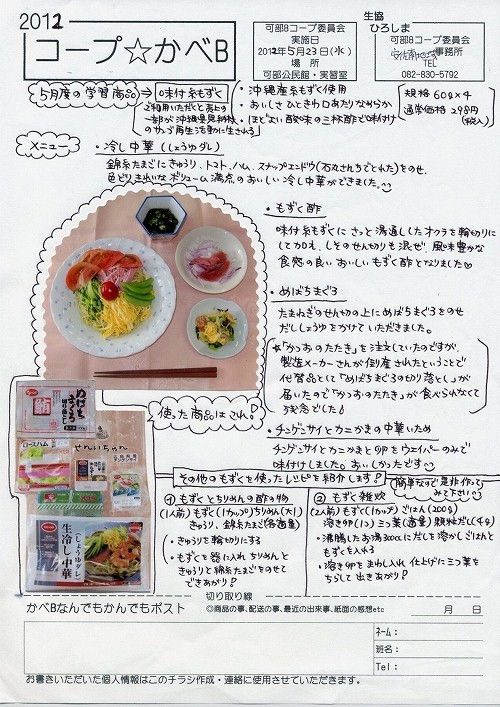 2012
コープ☆かべB
可部Bコープ委員会
実施日
2012年5月23日(水)
場 所
可部公民館・実習室
生協
ひろしま
可部Bコープ委員会
事務所
TEL
082-830-5792
5月度の学習商品⇒ 味付糸もずく
ご利用いただくと売上の
一部が沖縄県恩納村
のサンゴ再生活動に生される
・沖縄産糸もずく使用
・おいしさひきわ口あたりなめらか
・ほどよい酸味の三杯酢で味付け
規格 60g×4
通常価格 298円
(税込)
メニュー
・冷し中華(しょうゆダレ)
錦糸たまごにきゅうり、トマト、ハム、スナップエンドウ(石丸さんちでとれた)をのせ、
色どりきれいなボリューム満点のおいしい冷し中華ができました。
・もずく酢
味付糸もずくにさっと湯通ししたオクラを輪切りに
して加え、しそのせん切りも混ぜ 風味豊かな
食感の良いおいしいもずく酢となりました♡
・めばちまぐろ
たまねぎのせん切の上にめばちまぐろをのせ
だししょうゆをかけていただきました。
☆「かつおのたたき」を注文していたのですが、
製造メーカーさんが倒産されたということで
代替品として「めばちまぐろの切り落とし」が
届いたので「かつおのたたき」が食べられなくて
残念でした♪
使った商品はこれ!
・チンゲンサイとカニかまの中華いため
チンゲンサイとカニかまと卵をウェイパーのみで
味付けしました。おいしかったです
めばちまぐろ
切り落とし
鮪
ロースハム
せんいちゃん
チンゲンサイ
しょうゆダレ
生冷し中華
その他のもずくを使ったレシピを紹介します!
簡単なので是非作って
みて下さい
① もずくとちりめんの酢の物
(1人前) もずく(1カップ) ちりめん(大1)
きゅうり、錦糸たまご(各適量)
・きゅうりを輪切りにする
・もずくを器に入れ ちりめんと
きゅうりと錦糸たまごをのせて
できあがり!
② もずく雑炊
(2人前) もずく(1カップ) ごはん(200g)
溶き卵(1コ) 三ッ葉(適量) 顆粒だし(4g)
・沸騰したお湯300ccにだしを溶かしごはんと
もずくを入れる
・溶き卵をまわし入れ 仕上げに三ッ葉を
ちらして出きあがり!
切り取り線
かべBなんでもかんでもポスト
◎商品の事、配送の事、最近の出来事、紙面の感想etc
月 日
ネーム:
班名:
Tel:
お書きいただいた個人情報はこのチラシ作成・連絡に使用させていただきます。